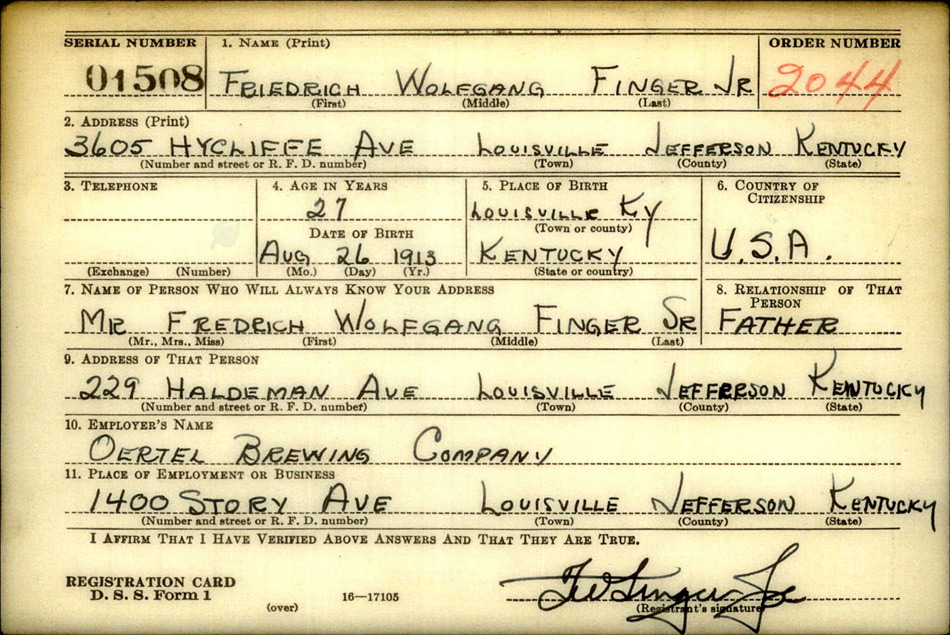 SERIAL NUMBER 1. NAME (Print) ORDER NUMBER
01508 FRIEDRICH WOLFGANG FINGER JR 2044
(First) (Middle) (Last)
2. ADDRESS (Print)
3605 HYCLIFFE AVE LOUISVILLE JEFFERSON KENTUCKY
(Number and street or R. F. D. number) (Town) (County) (State)
3. TELEPHONE 4. AGE IN YEARS 5. PLACE OF BIRTH 6. COUNTRY OF CITIZENSHIP
27 LOUISVILLE KY
DATE OF BIRTH (Town or county)
AUG 26 1913 KENTUCKY U.S.A.
(Exchange) (Number) (Mo.) (Day) (Yr.) (State or country)
7. NAME OF PERSON WHO WILL ALWAYS KNOW YOUR ADDRESS 8. RELATIONSHIP OF THAT PERSON
MR FREDRICH WOLFGANG FINGER SR FATHER
(Mr., Mrs., Miss) (First) (Middle) (Last)
9. ADDRESS OF THAT PERSON
229 HALDEMAN AVE LOUISVILLE JEFFERSON KENTUCKY
(Number and street or R. F. D. number) (Town) (County) (State)
10. EMPLOYER'S NAME
OERTEL BREWING COMPANY
11. PLACE OF EMPLOYMENT OR BUSINESS
1400 STORY AVE LOUISVILLE JEFFERSON KENTUCKY
(Number and street or R. F. D. number) (Town) (County) (State)
I AFFIRM THAT I HAVE VERIFIED ABOVE ANSWERS AND THAT THEY ARE TRUE.
REGISTRATION CARD
D. S. S. Form 1 FW Finger Jr
(over) 16—17105 (Registrant's signature)